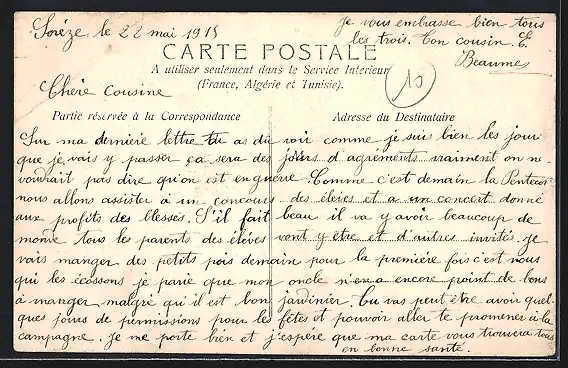 Sorèze le 22 mai 1915
je vous embrasse bien tous
les trois. Ton cousin. E.
Beaume
CARTE POSTALE
A utiliser seulement dans le Service Interieur
(France, Algérie et Tunisie).
10
Chère Cousine
Partie réservée à la Correspondance
Adresse du Destinataire
Sur ma dernière lettre tu as du voir comme je suis bien les jour
que je vais y passer ça sera des jours d'agrements vraiment on ne
voudrait pas dire qu'on est en guerre. Comme c'est demain la Pentecos
nous allons assister à un concours des élèves et a un concert donné
aux profits des blessés. S'il fait beau il va y avoir beaucoup de
monde tous les parents des élèves vont y être et d'autres invités. je
vais manger des petits pois demain pour la première fois c'est nous
qui les écossons je parie que mon oncle n'en a encore point de bons
à manger malgré qu'il est bon jardinier. Tu vas peut être avoir quel-
ques jours de permissions pour les fêtes et pouvoir aller te promener à la
campagne. je me porte bien et j'espère que ma carte vous trouvera tous
en bonne santé.